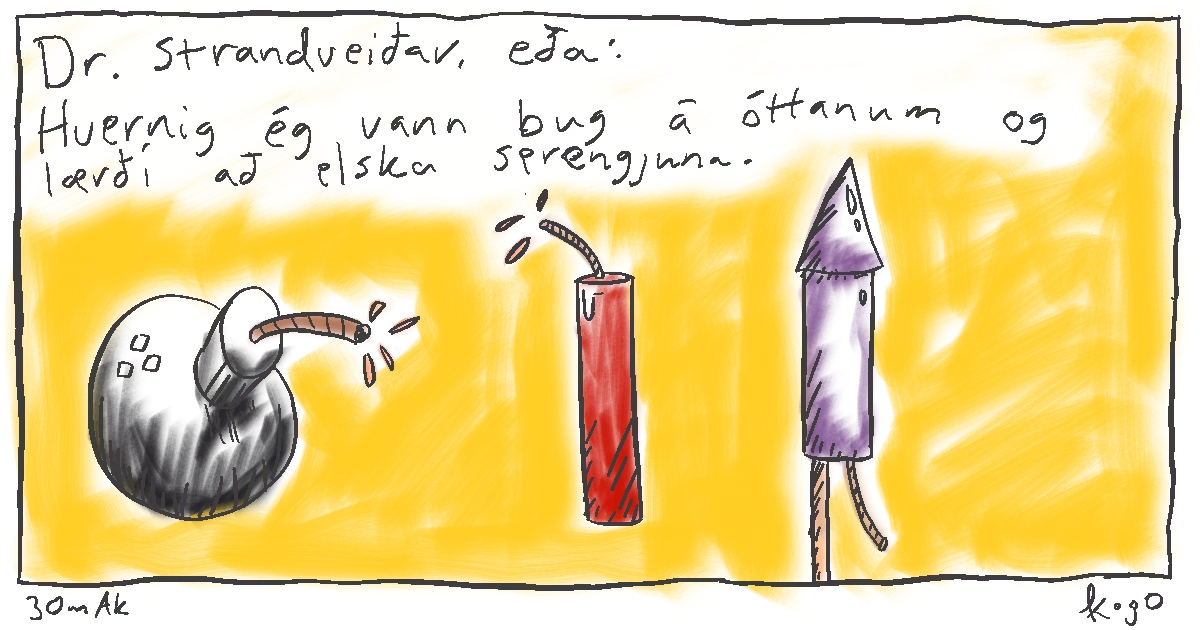 Dr. Strandveiðar, eða:
Hvernig ég vann bug á óttanum og
lærði að elska sprengjuna.
30mAk
k.g0